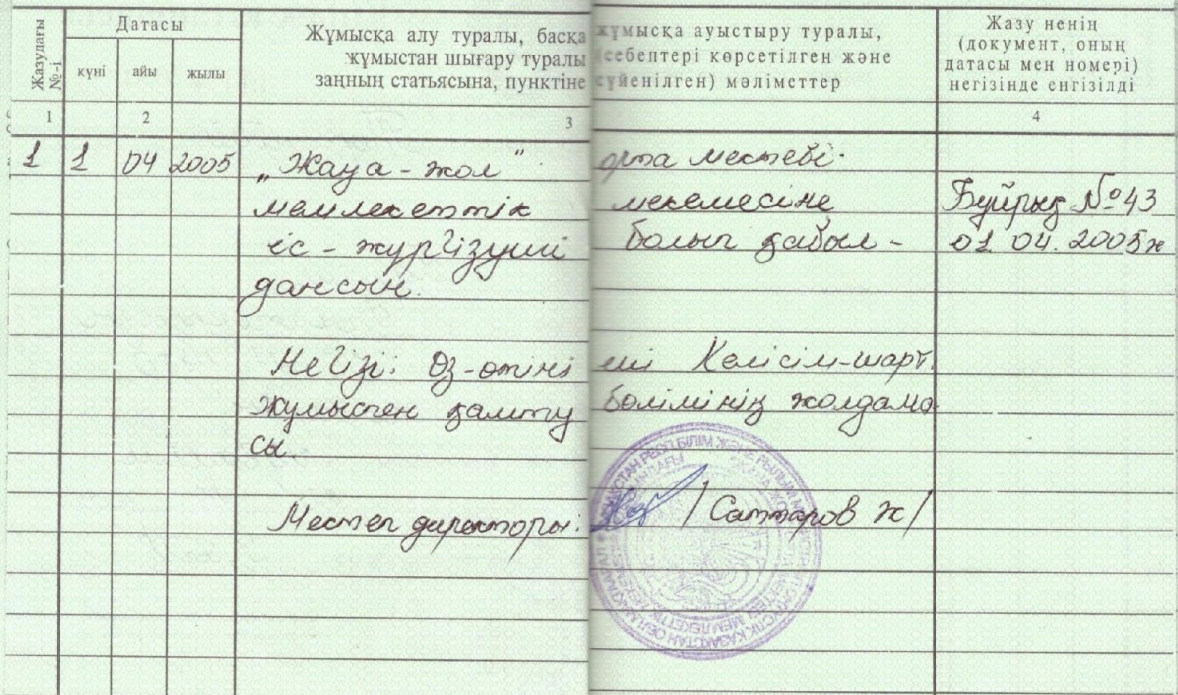 Жазулағы №-і
Датасы
күні айы жылы
Жұмысқа алу туралы, басқа жұмысқа ауыстыру туралы,
жұмыстан шығару туралы (себептері көрсетілген және
заңның статьясына, пунктіне сүйенілген) мәліметтер
Жазу ненің
(документ, оның
датасы мен номері)
негізінде енгізілді
1 2 3 4
1 1 04 2005 „Жаңа - жол" орта мектебі
мемлекеттік мекемесіне Бұйрық №43
іс - жүргізуші болып қабыл - 01 04. 2005ж
дансын.
Негізі: Өз-өтіні еші Келісім-шарт.
жұмыспен қамту бөлімінің жолдама
сы.
Мектеп директоры: / Саттаров Ж /